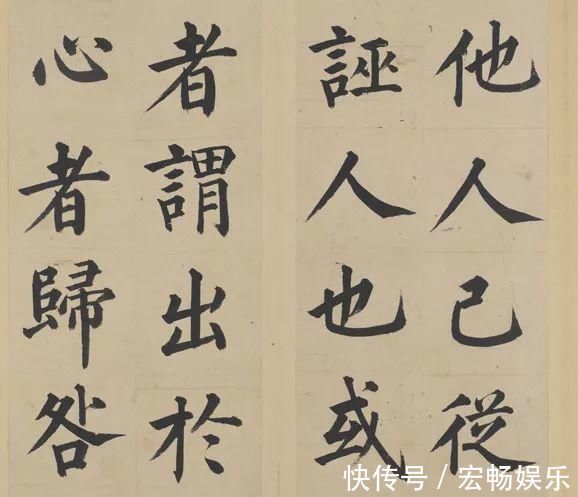 他人己從
誣人也或
者謂出於
心者歸咎
快传号 / 宏畅娱乐